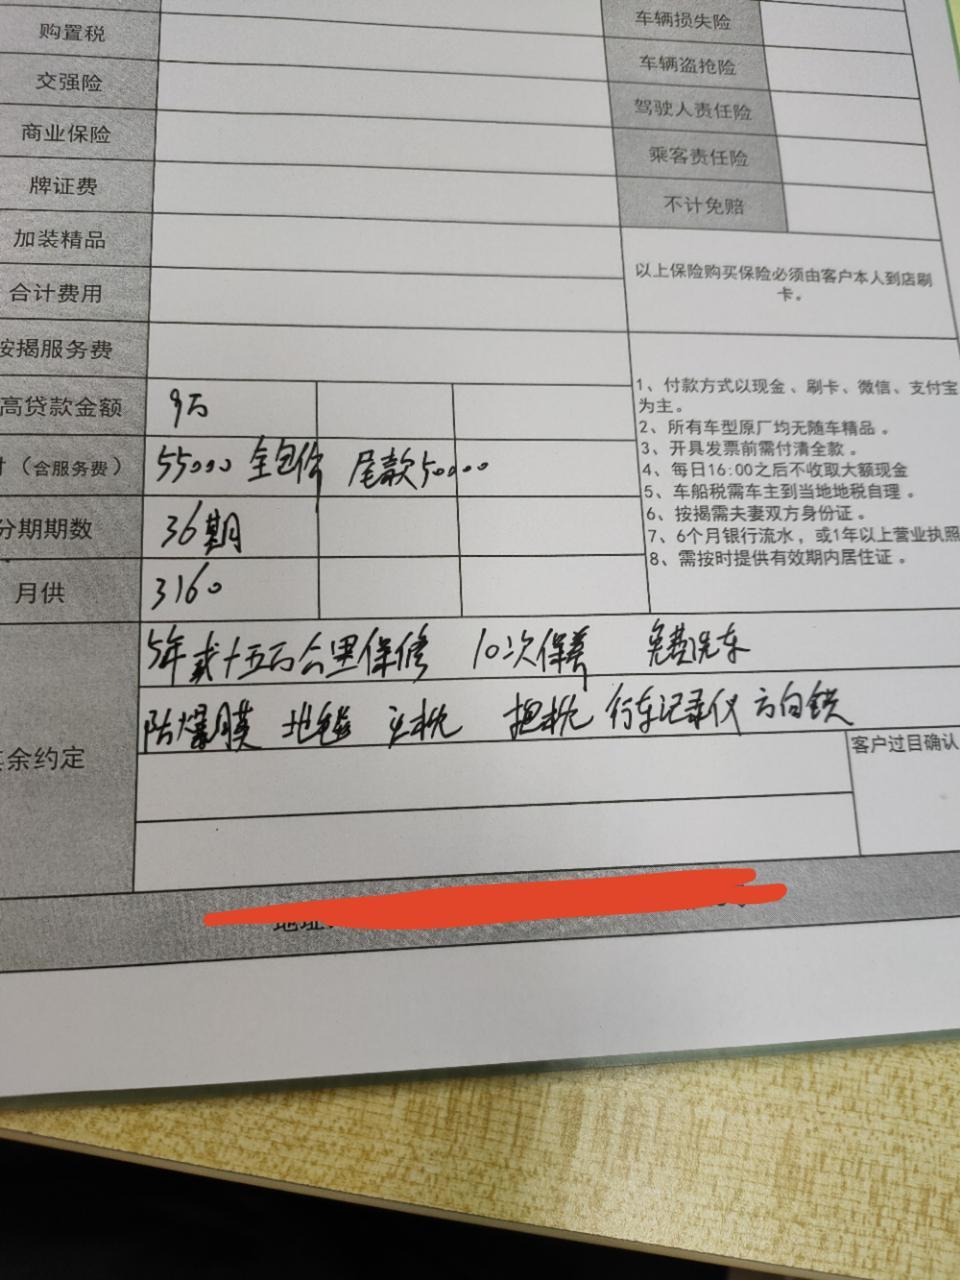 购置税
车辆损失险
交强险
车辆盗抢险
商业保险
驾驶人责任险
牌证费
乘客责任险
加装精品
不计免赔
合计费用
以上保险购买保险必须由客户本人到店刷
卡。
按揭服务费
高贷款金额 9万
付（含服务费） 55000 全包价 尾款50000
分期期数 36期
月供 3160
1、付款方式以现金、刷卡、微信、支付宝
为主。
2、所有车型原厂均无随车精品。
3、开具发票前需付清全款。
4、每日16:00之后不收取大额现金
5、车船税需车主到当地地税自理。
6、按揭需夫妻双方身份证。
7、6个月银行流水，或1年以上营业执照
8、需按时提供有效期内居住证。
其余约定
5年或十五万公里保修 10次保养 免费洗车
防爆膜 地毯 头枕 抱枕 行车记录仪 方向锁
客户过目确认
地址: